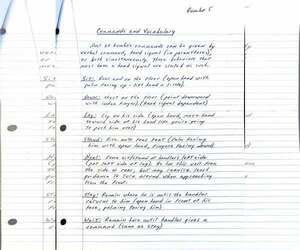 Rambo 5
Commands and Vocabulary
Most of Rambo's commands can be given by
verbal command, hand signal (in parentheses),
or both simultaneously. Those behaviors that
must have a hand are stated as such.
Sit: Rear end on the floor (open hand with
palm facing up - left hand
Down: Chest on the floor (point downward
with index finger). (hand signal dependent)
Lay: Lay on his side (open hand, move hand
toward side of his head like you're going
to push him over)
Stand: Rise onto rear feet (palm facing
him with open hand, fingers facing
Heel: Come sit/stand at handlers left side
(pat left side of leg). He does this well from
the side or rear, but may require
guidance to turn around when approaching
from the front.
Stay: Remain where he is until the handler
returns to him (open hand in front of his
face, palm facing him)
Wait: Remain here until handler gives a
command (same as stay)